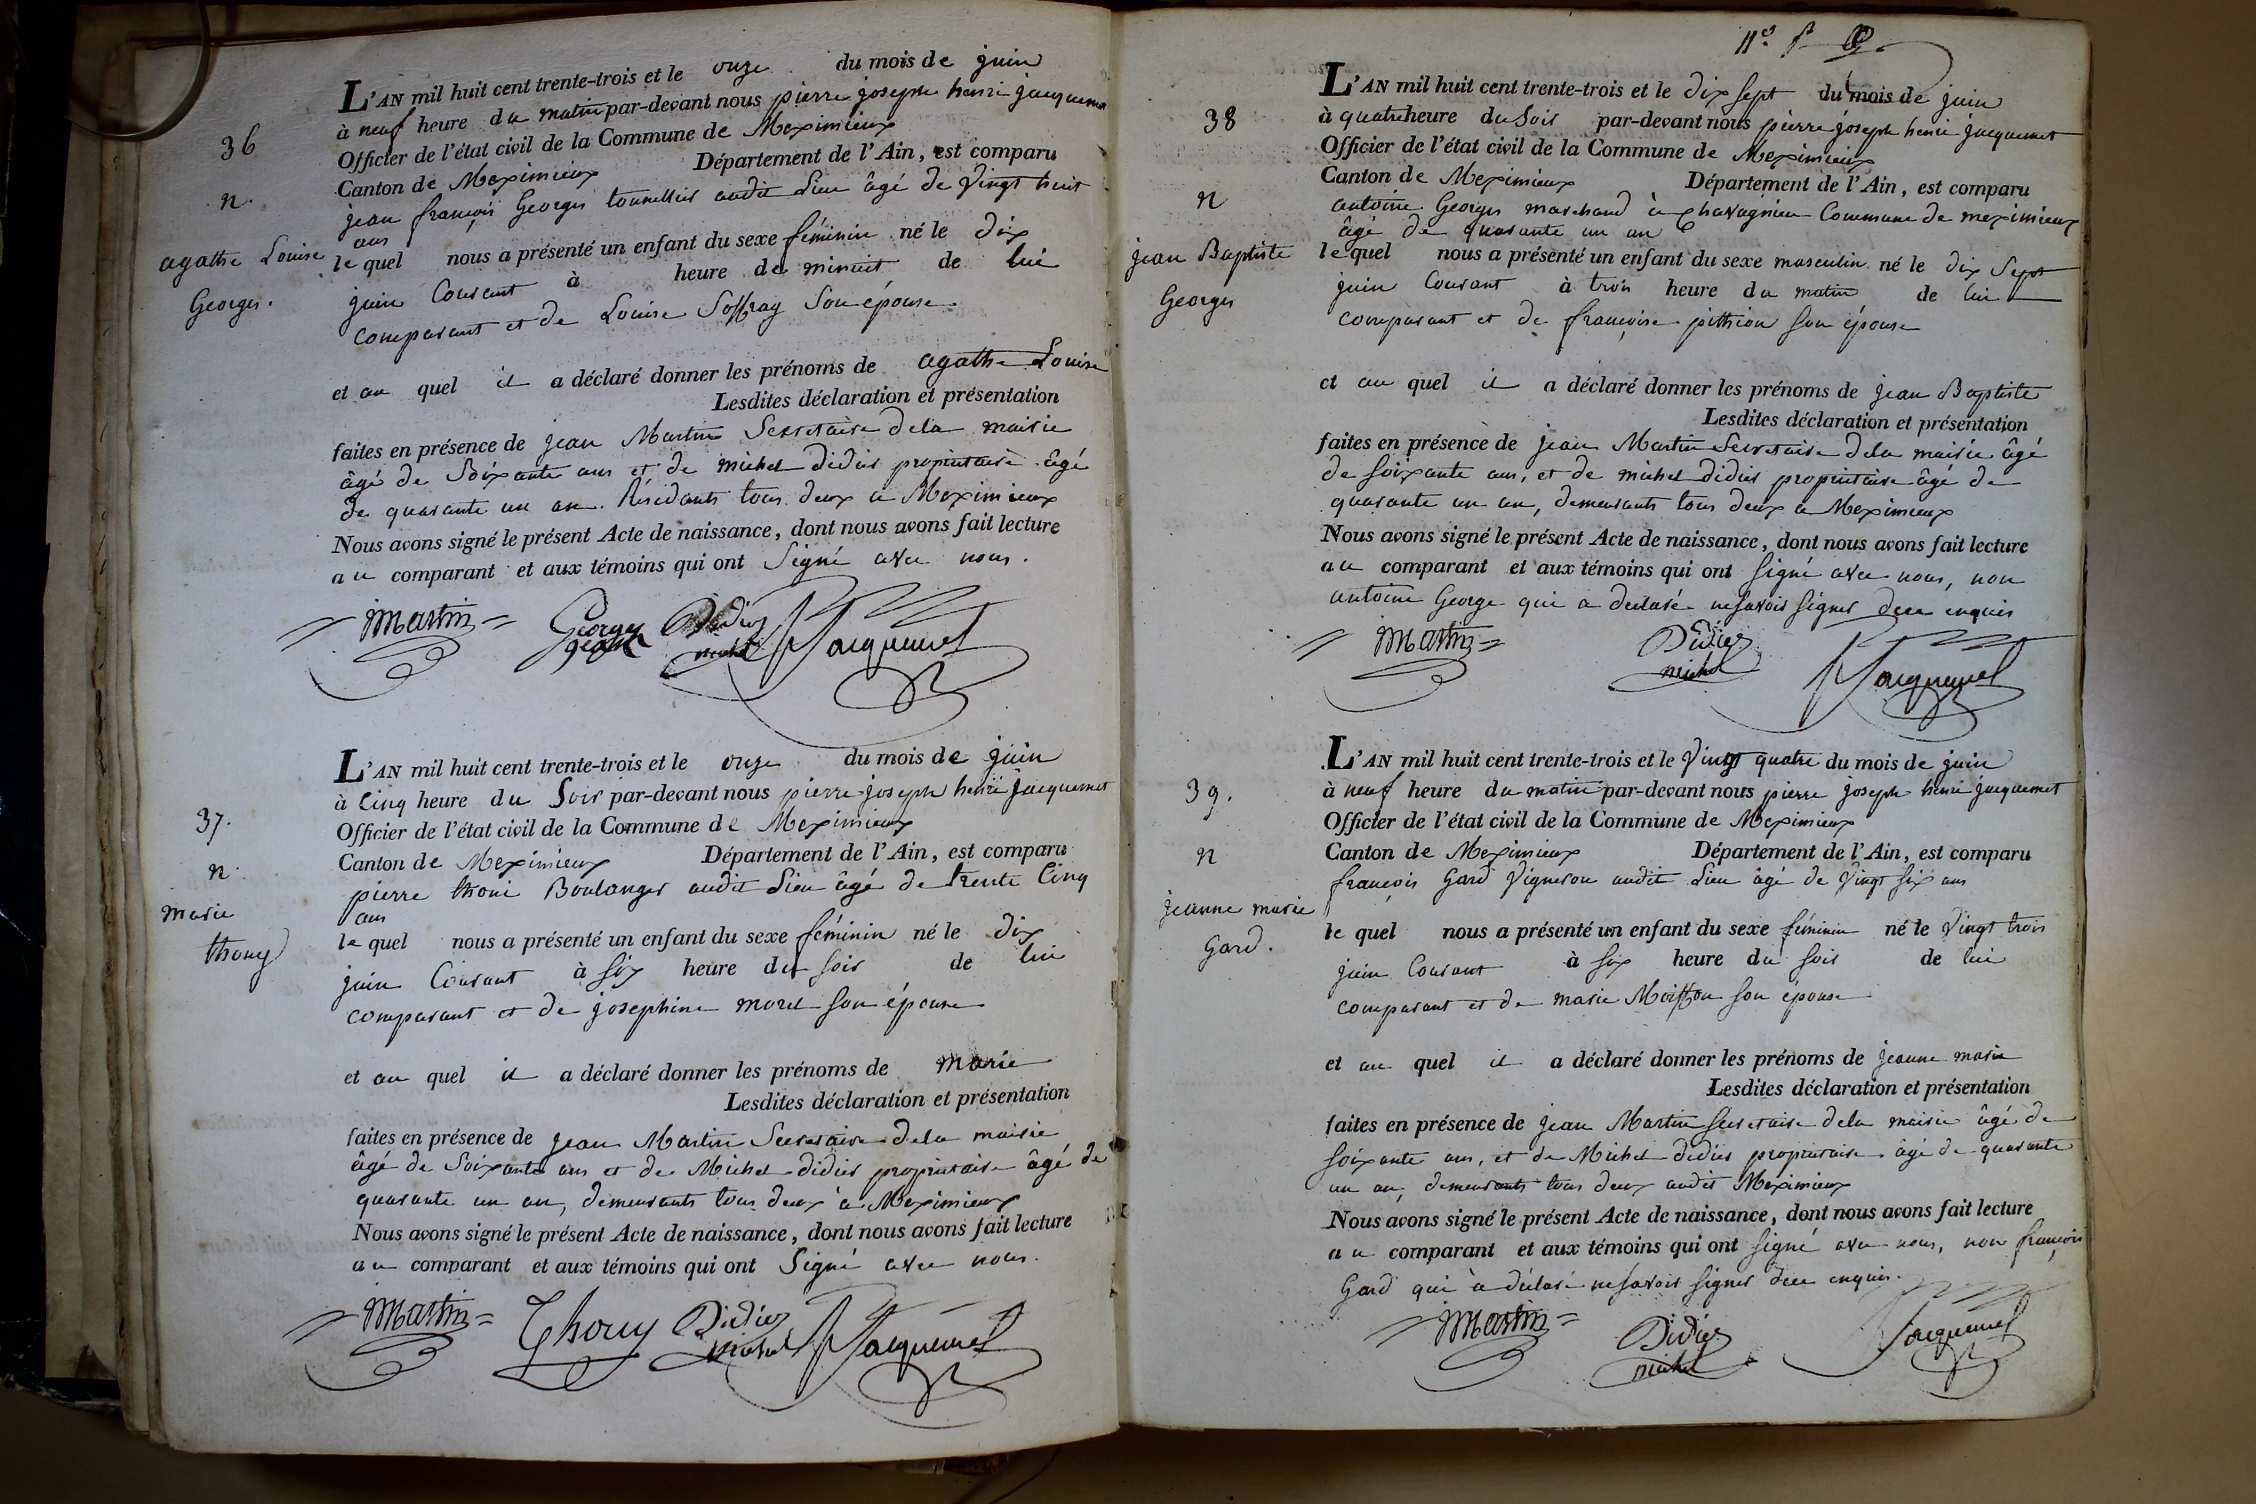 36
n.
agathe Louise
Georges.
L'AN mil huit cent trente-trois et le onze du mois de juin
à neuf heure du matin par-devant nous pierre joseph henri jacquemet
Officier de l'état civil de la Commune de Meximieux
Canton de Meximieux Département de l'Ain, est comparu
jean françois Georges tonnellier audit Lieu âgé de Vingt huit
ans
le quel nous a présenté un enfant du sexe féminin né le dix
juin Courant à heure de minuit de lui
comparant et de Louise Soffray Son épouse.
et au quel il a déclaré donner les prénoms de agathe Louise
Lesdites déclaration et présentation
faites en présence de jean Martin Secretaire dela mairie
âgé de Soixante ans et de michel didier proprietaire âgé
de quarante un an. Résidants tous deux a Meximieux
Nous avons signé le présent Acte de naissance, dont nous avons fait lecture
au comparant et aux témoins qui ont Signé avec nous.
Martin Georges Didier michel Jacquemet
37.
n.
marie
thony
L'AN mil huit cent trente-trois et le onze du mois de juin
à Cinq heure du Soir par-devant nous pierre joseph henri jacquemet
Officier de l'état civil de la Commune de Meximieux
Canton de Meximieux Département de l'Ain, est comparu
pierre thoni Boulanger audit Lieu âgé de trente Cinq
ans
le quel nous a présenté un enfant du sexe féminin né le dix
juin Courant à six heure du soir de lui
comparant et de josephine morel son épouse
et au quel il a déclaré donner les prénoms de marie
Lesdites déclaration et présentation
faites en présence de jean Martin Secretaire dela mairie
âgé de Soixante ans et de Michel didier propriétaire âgé de
quarante un an, demeurants tous deux a Meximieux
Nous avons signé le présent Acte de naissance, dont nous avons fait lecture
au comparant et aux témoins qui ont Signé avec nous.
Martin Thony Didier michel Jacquemet
11e f
38
n
jean Baptiste
Georges
L'AN mil huit cent trente-trois et le dix sept du mois de juin
à quatre heure du Soir par-devant nous pierre joseph henri jacquemet
Officier de l'état civil de la Commune de Meximieux
Canton de Meximieux Département de l'Ain, est comparu
antoine Georges marchand à Chavagnieu Commune de meximieux
âgé de quarante un an
le quel nous a présenté un enfant du sexe masculin né le dix Sept
juin Courant à trois heure du matin de lui
comparant et de françoise pithion son épouse
et au quel il a déclaré donner les prénoms de jean Baptiste
Lesdites déclaration et présentation
faites en présence de jean Martin Secretaire dela mairie âgé
de soixante ans, et de michel didier propriétaire âgé de
quarante un an, demeurants tous deux a Meximieux
Nous avons signé le présent Acte de naissance, dont nous avons fait lecture
au comparant et aux témoins qui ont signé avec nous, non
antoine George qui a declaré ne savoir signer dece enquis
Martin Didier michel Jacquemet
39.
n
jeanne marie
Gard.
L'AN mil huit cent trente-trois et le Vingt quatre du mois de juin
à neuf heure du matin par-devant nous pierre joseph henri jacquemet
Officier de l'état civil de la Commune de Meximieux
Canton de Meximieux Département de l'Ain, est comparu
françois Gard Vigneron audit Lieu âgé de Vingt six ans
le quel nous a présenté un enfant du sexe féminin né le Vingt trois
juin Courant à six heure du soir de lui
comparant et de marie Moiffon son épouse
et au quel il a déclaré donner les prénoms de jeanne marie
Lesdites déclaration et présentation
faites en présence de jean Martin secretaire dela mairie âgé de
soixante ans, et de Michel didier propriétaire âgé de quarante
un an, demeurants tous deux audit Meximieux
Nous avons signé le présent Acte de naissance, dont nous avons fait lecture
au comparant et aux témoins qui ont signé avec nous, non françois
Gard qui a déclaré ne savoir signer dece enquis.
Martin Didier michel Jacquemet